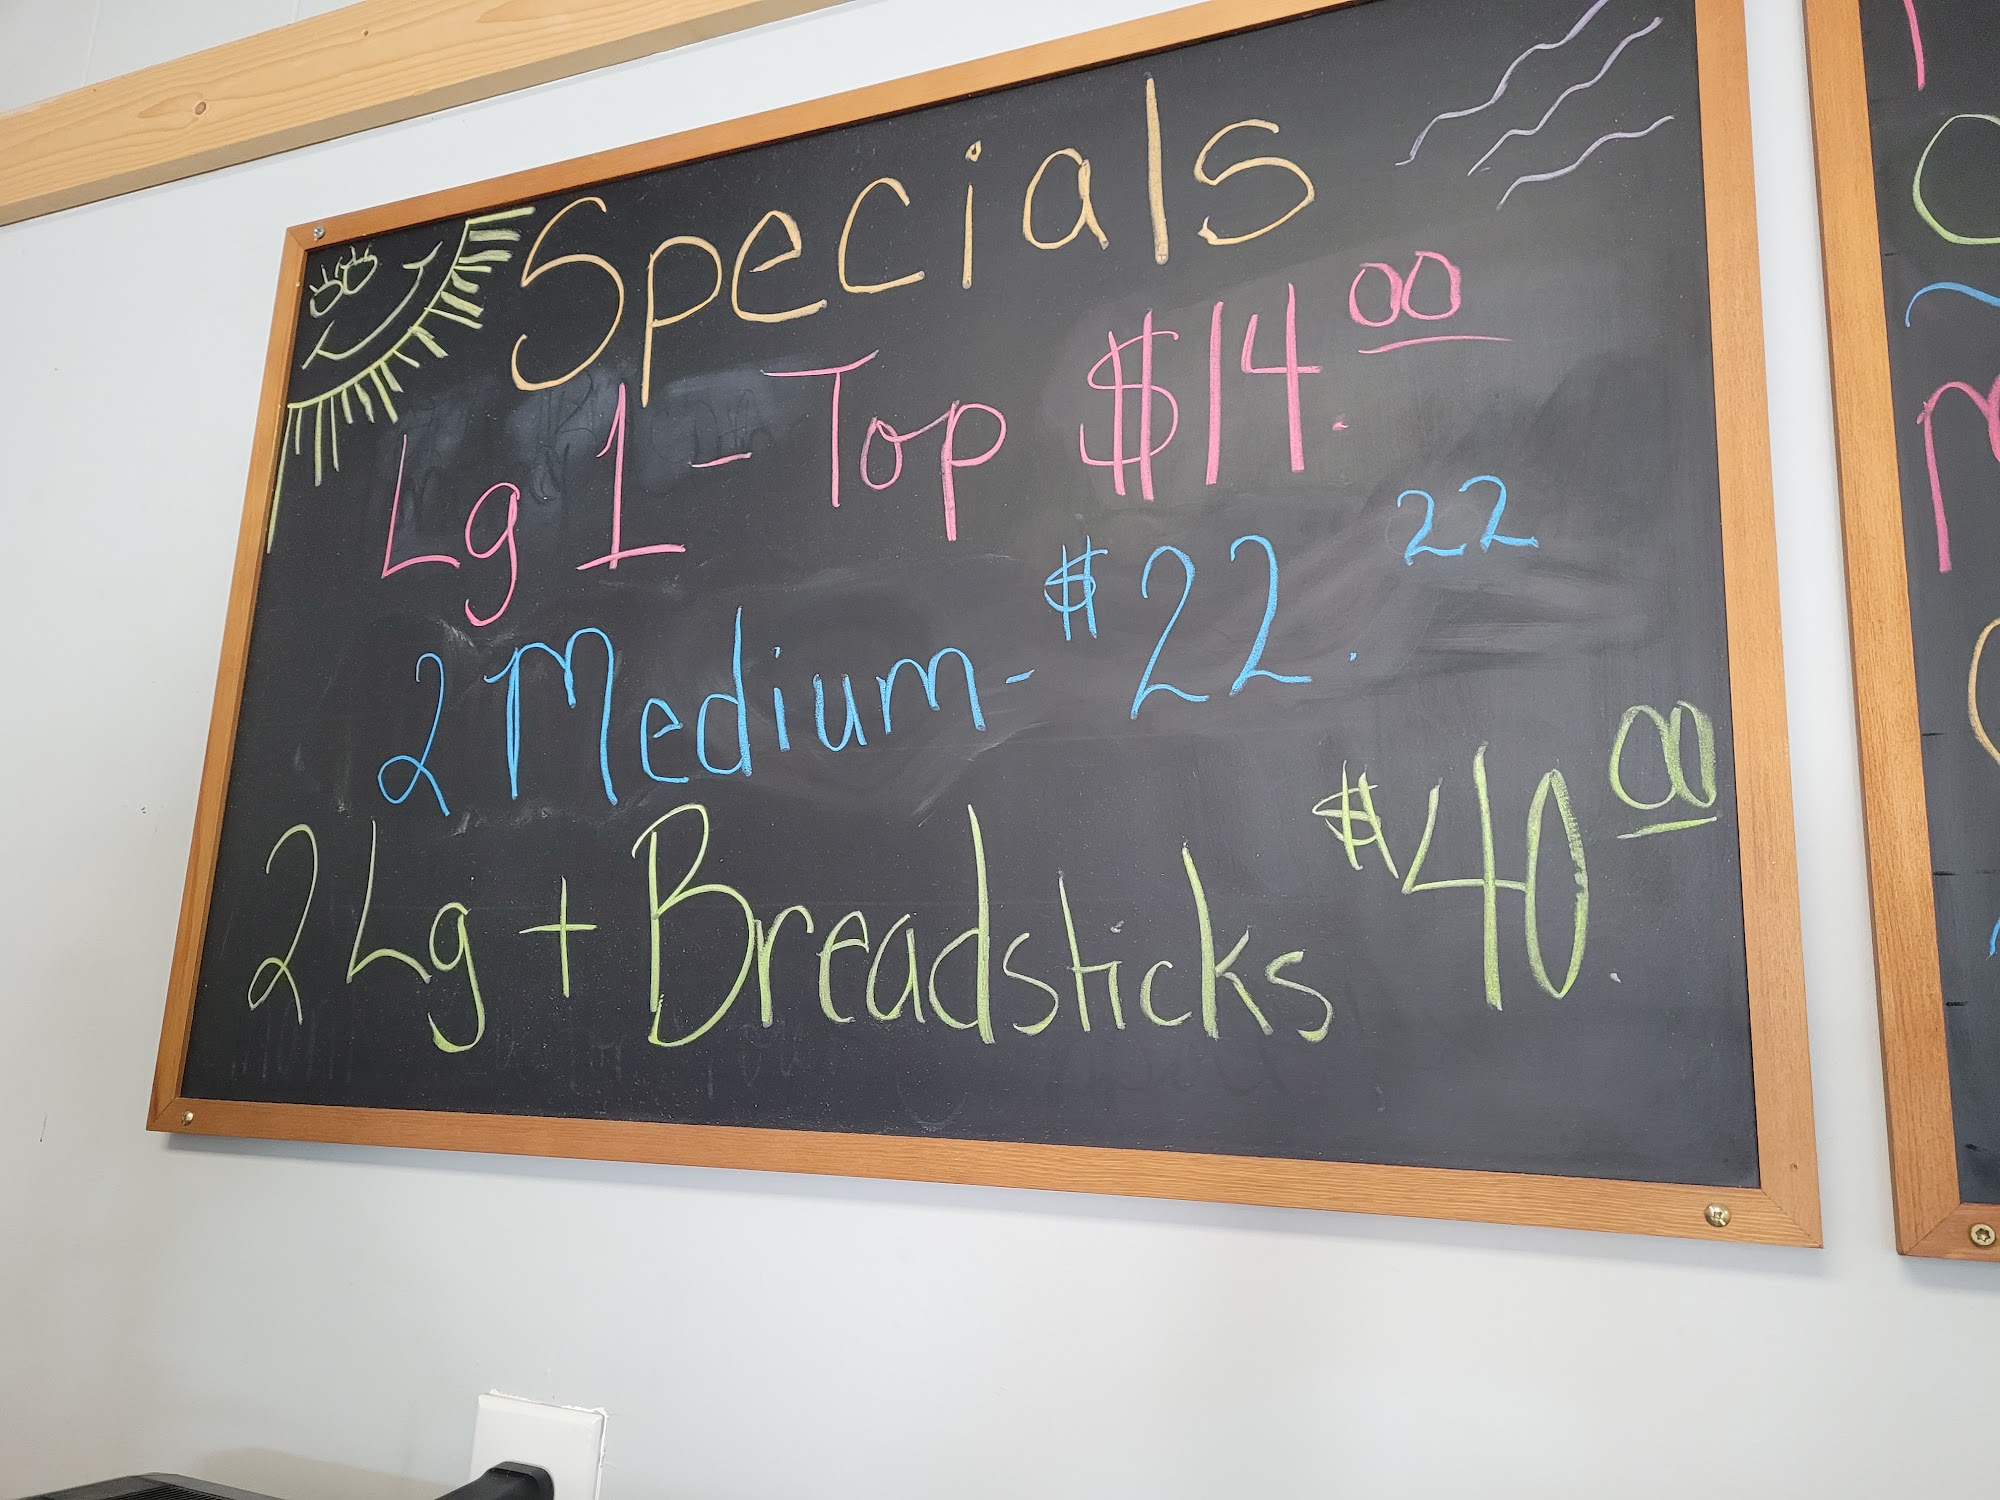 Specials
Lg 1-Top $14.00
2 Medium- $22.22
2 Lg + Breadsticks $40.00